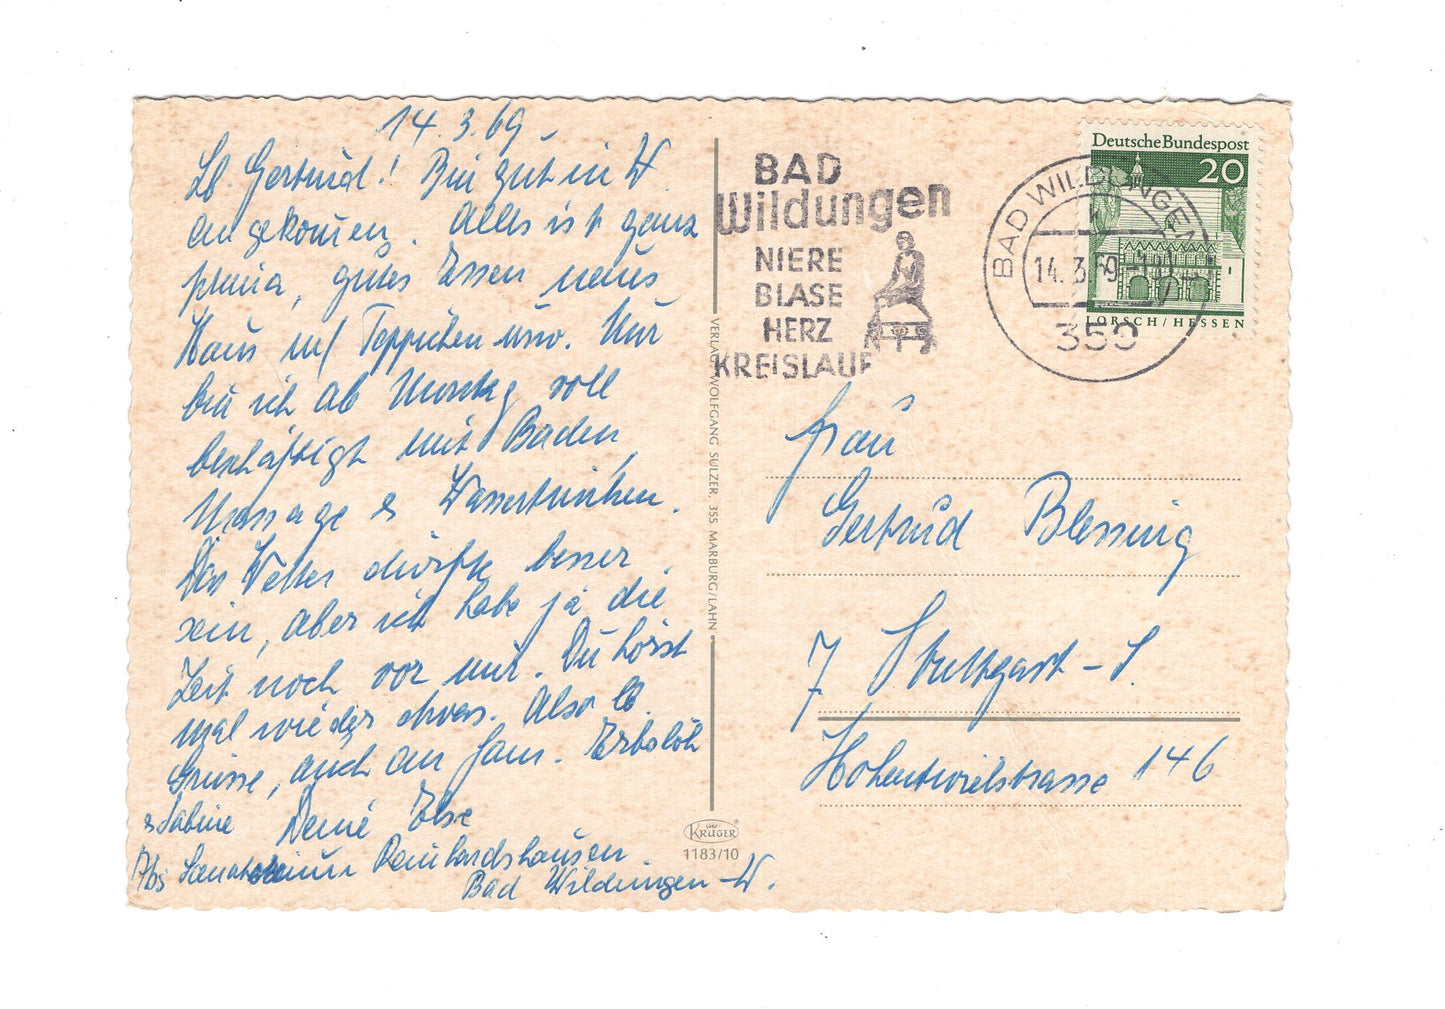 14.3.69.
Lb. Gertrud! Bin gut in W.
angekommen. Alles ist ganz
prima, gutes Essen neues
Haus m/ Teppichen usw. Nur
bin ich ab Montag voll
beschäftigt mit Baden,
Massage & Wassertrinken.
Das Wetter dürfte besser
sein, aber ich habe ja die
Zeit noch vor mir. Du hörst
mal wieder etwas. Also lb.
Grüsse, auch an Fam.
& Sabine Deine Else
Abs Sanatorium Reinhardshausen.
Bad Wildungen-W.
BAD
Wildungen
NIERE
BLASE
HERZ
KREISLAUF
BAD WILDUNGEN
14.3.69
359
Deutsche Bundespost
20
LORSCH/HESSEN
VERLAG WOLFGANG SULZER, 355 MARBURG/LAHN
Frau
Gertrud Blessing
7 Stuttgart-S.
Hohentwielstrasse 146
KRÜGER
1183/10